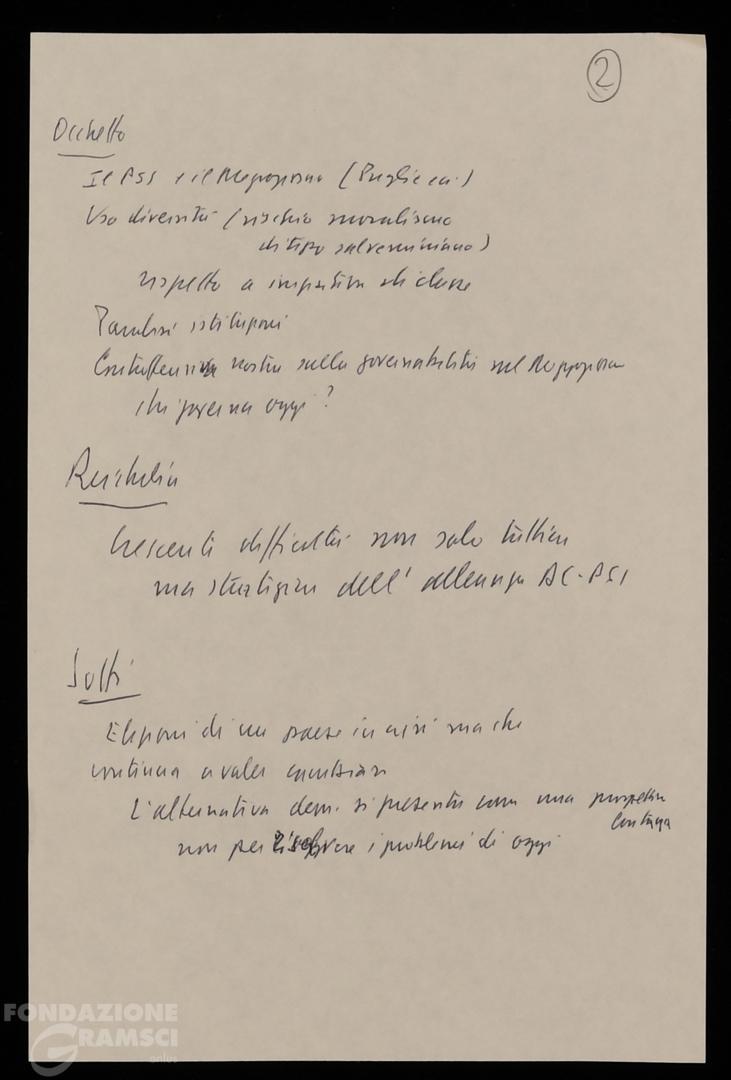 2
Occhetto
Il PSI e il Mezzogiorno (Puglia ecc.)
Uso diversità (rischio moralismo
di tipo salveminiano)
rispetto a impostaz. di classe
Paralisi istituzioni
Controffensiva nostra sulla governabilità nel Mezzogiorno
chi governa oggi?
Reichlin
Crescenti difficoltà non solo tattica
ma strategica dell'alleanza DC-PSI
Solti
Elezioni di un paese in crisi ma che
continua a voler cambiare
L'alternativa dem. si presenta come una prospettiva
lontana
non per risolvere i problemi di oggi
FONDAZIONE
GRAMSCI
onlus